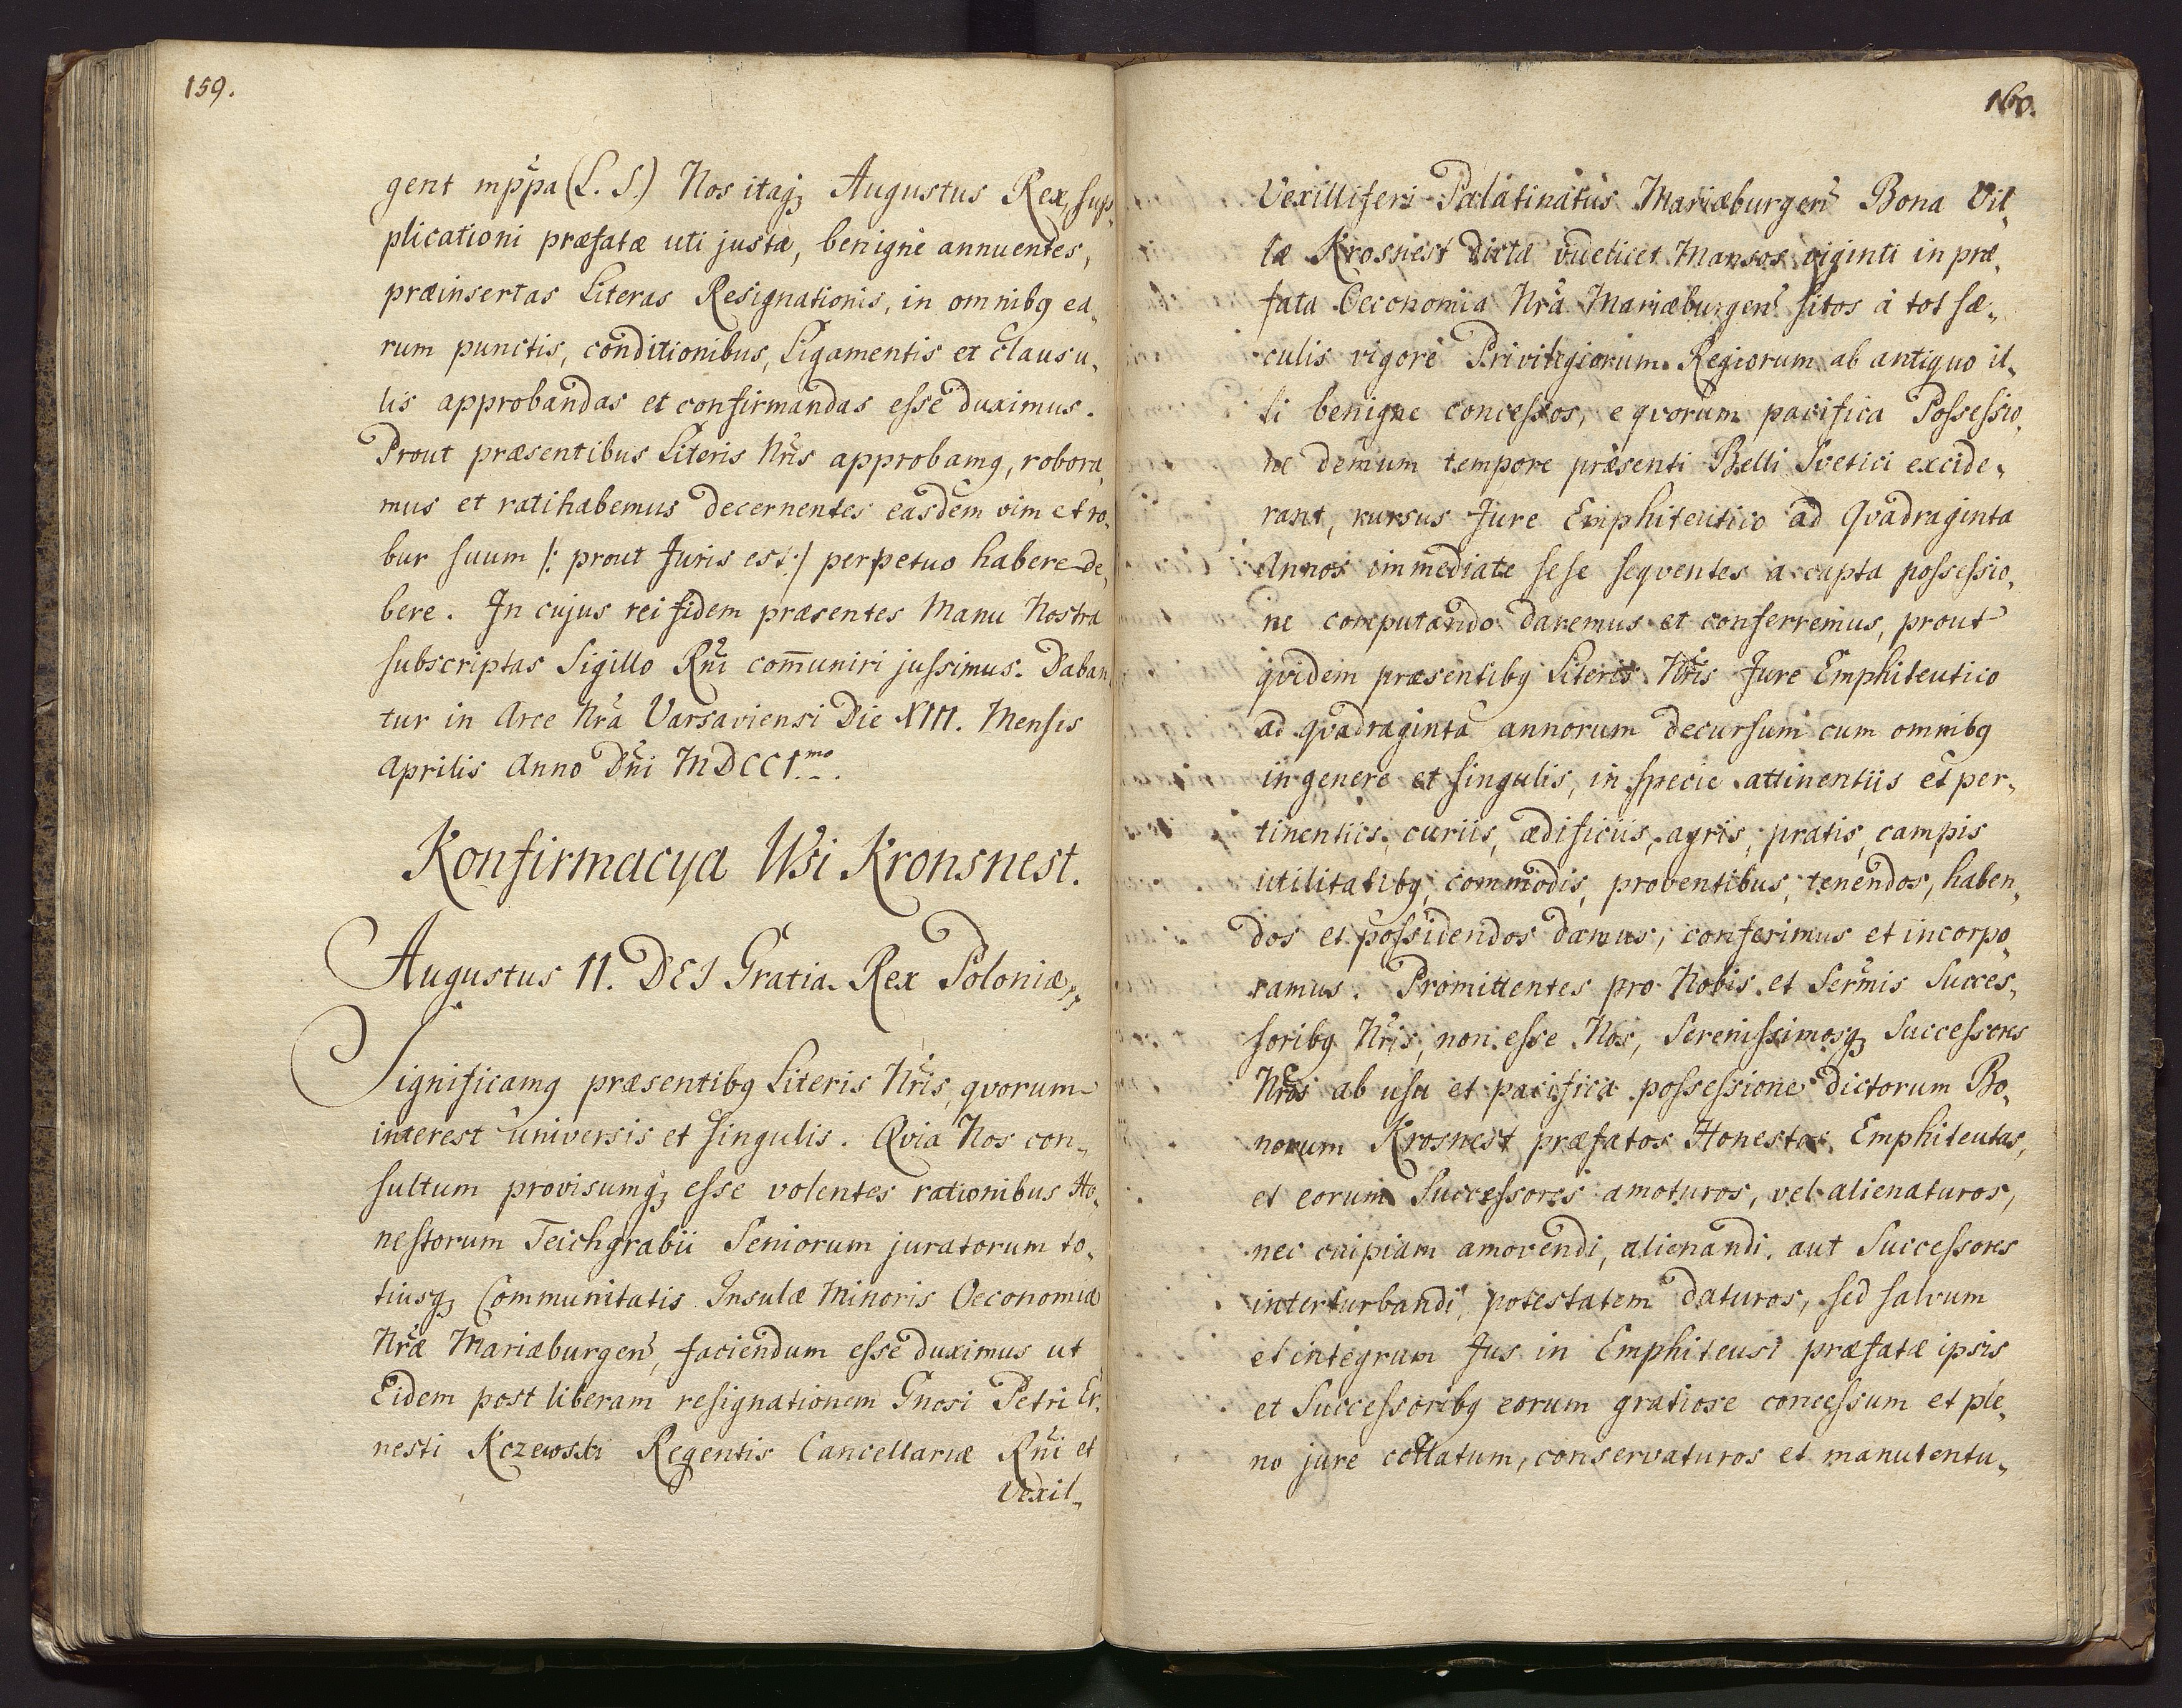 159.
gent mppa (L. S.) Nos itaq; Augustus Rex, sup,
plicationi præfatæ uti justæ, benigne annuentes,
præinsertas Literas Resignationis, in omnibq ea,
rum punctis, conditionibus, Ligamentis et clausu,
lis approbandas et confirmandas esse duximus.
Prout præsentibus Literis Nris approbamq, robora,
mus et ratihabemus decernentes easdem vim et ro,
bur suum /: prout Juris est :/ perpetuo habere de,
bere. In cujus rei fidem præsentes Manu Nostra
subscriptas Sigillo Rni com̄uniri jussimus. Daban,
tur in Arce Nra Varsaviensi Die XIII. Mensis
Aprilis Anno Dni MDCCI.mo.
Konfirmacya Wsi Kronsnest.
Augustus II. DEI Gratia Rex Poloniæ
Significamq præsentibq Literis Nris, qvorum
interest universis et singulis. Qvia Nos con,
sultum provisumq; esse volentes rationibus Ho,
nestorum Teichgrabii Seniorum juratorum to,
tiusq; Communitatis Insulæ Minoris Oeconomiæ
Nræ Mariæburgen, faciendum esse duximus ut
Eidem post liberam resignationem Gnosi Petri Er,
nesti Kczewski Regentis Cancellariæ Rni et
Vexil,
160.
Vexilliferi Palatinatus Mariæburgen Bona Vil,
læ Krosnest dictæ videlicet Mansos viginti in præ,
fata Oeconomia Nra Mariæburgen sitos à tot sæ,
culis vigore Privilegiorum Regiorum ab antiquo il,
li benigne concessos, e qvorum pacifica Possessio,
ne demum tempore præsenti Belli Svetici excide,
rant, rursus Jure Emphiteutico ad Qvadraginta
Annos immediate sese seqventes a capta possessio,
ne computando daremus et conferremus, prout
qvidem præsentibq Literis Nris Jure Emphiteutico
ad qvadraginta annorum decursum cum omnibq
in genere et singulis, in specie attinentiis et per,
tinentiis, curiis, ædificiis, agris, pratis, campis
utilitatibq, commodis, proventibus, tenendos, haben,
dos et possidendos damus, conferimus et incorpo,
ramus. Promittentes pro Nobis et Sermis Succes,
soribq Nris, non esse Nos, Serenissimosq; Successores
Nros ab usu et pacifica possessione dictorum Bo,
norum Krosnest præfatos Honestos Emphiteutas,
et eorum Successores amoturos, vel alienaturos,
nec cuipiam amovendi, alienandi, aut Successores
interturbandi, potestatem daturos, sed salvum
et integrum Jus in Emphiteusi præfatæ ipsis
et Successoribq eorum gratiose concessum et ple,
no jure collatum, conservaturos et manutentu,